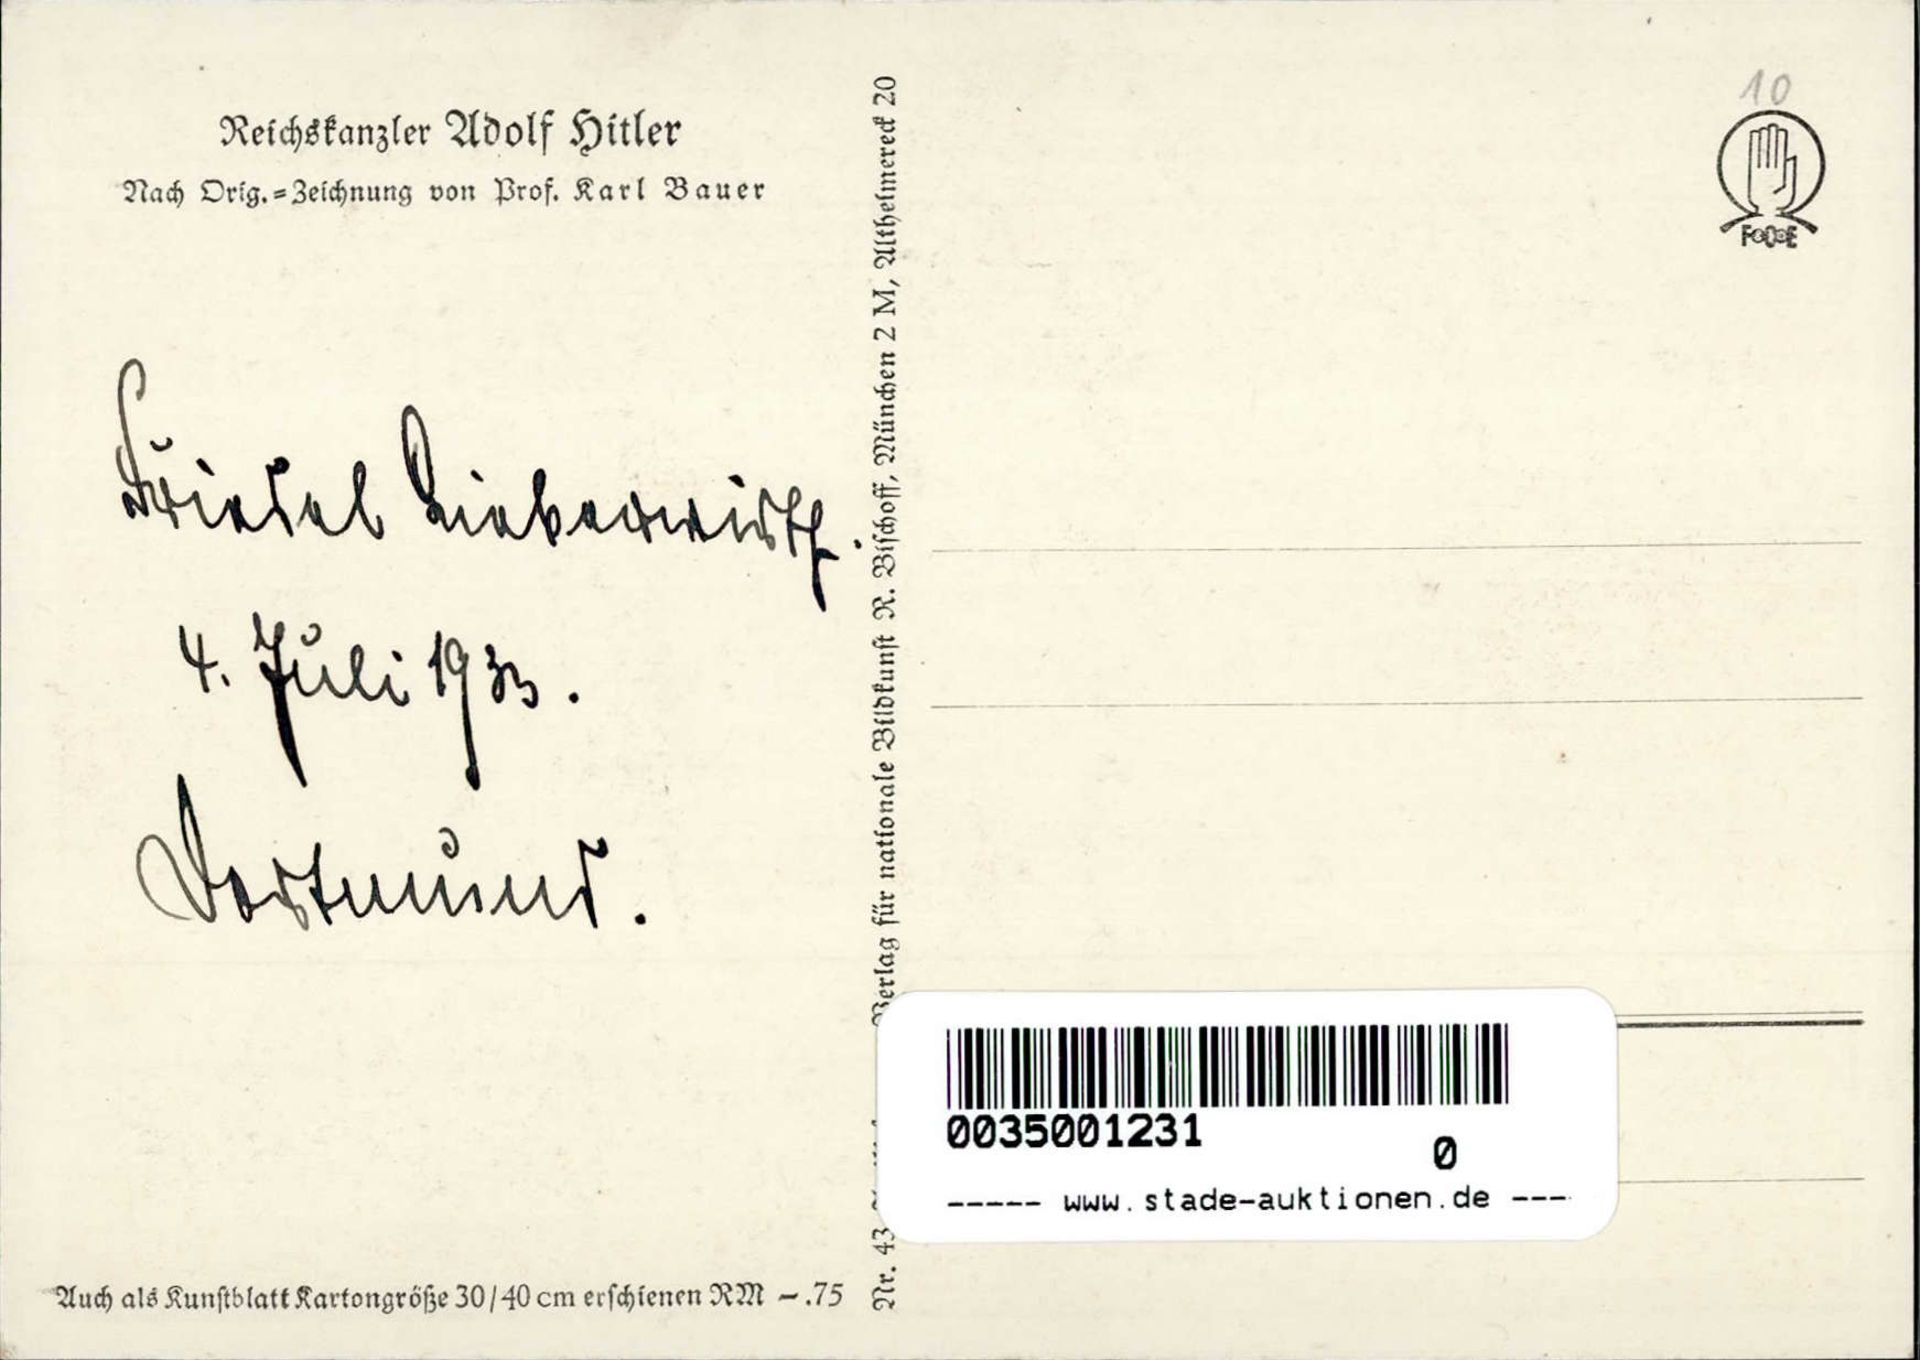 Reichskanzler Adolf Hitler
Nach Orig.=Zeichnung von Prof. Karl Bauer
Friedel Lieberwirth.
4. Juli 1933.
Dortmund.
Auch als Kunstblatt Kartongröße 30/40 cm erschienen RM -.75
Nr. 43
Verlag für nationale Bildkunst R. Bischoff, München 2 M, Altheimereck 20
10
0035001231
0
----- www.stade-auktionen.de ---